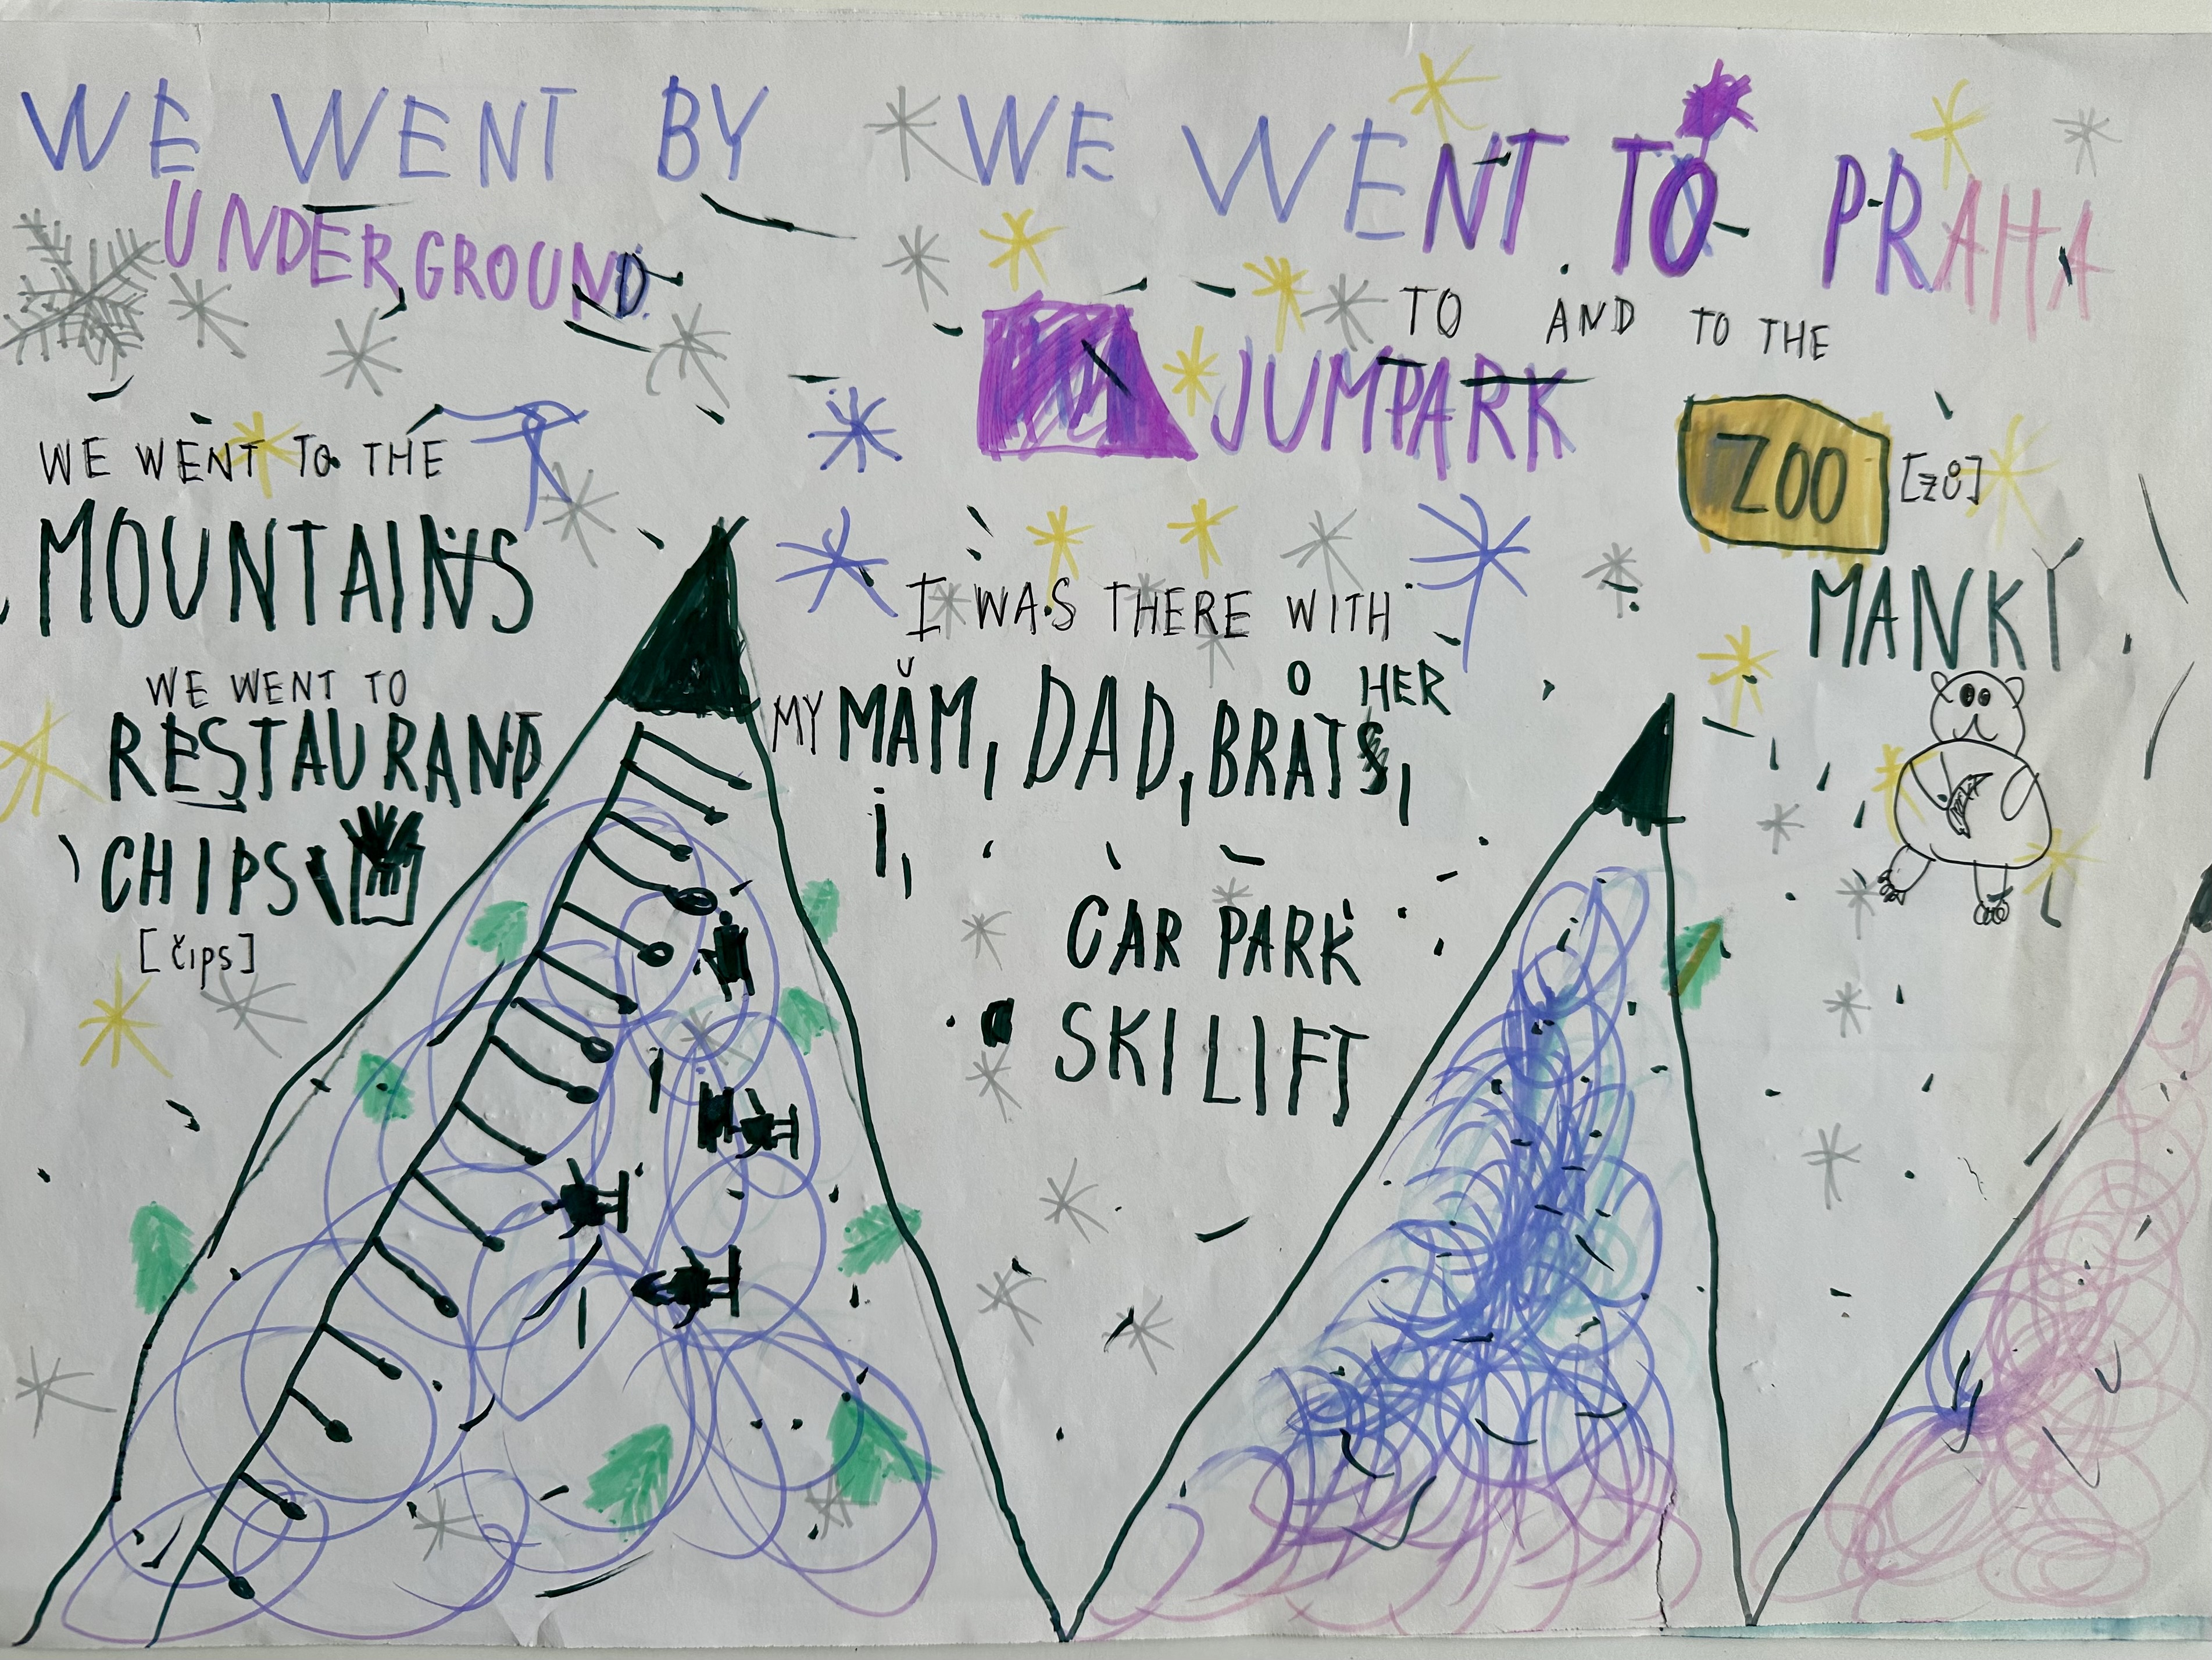 WE WENT BY
UNDERGROUND
WE WENT TO THE
MOUNTAINS
WE WENT TO
RESTAURAND
CHIPS
[čips]
WE WENT TO PRAHA
TO AND TO THE
JUMPARK
ZOO [zů]
MANKI
I WAS THERE WITH
MY MAM, DAD, BRAT HER,
i,
CAR PARK
SKI LIFT